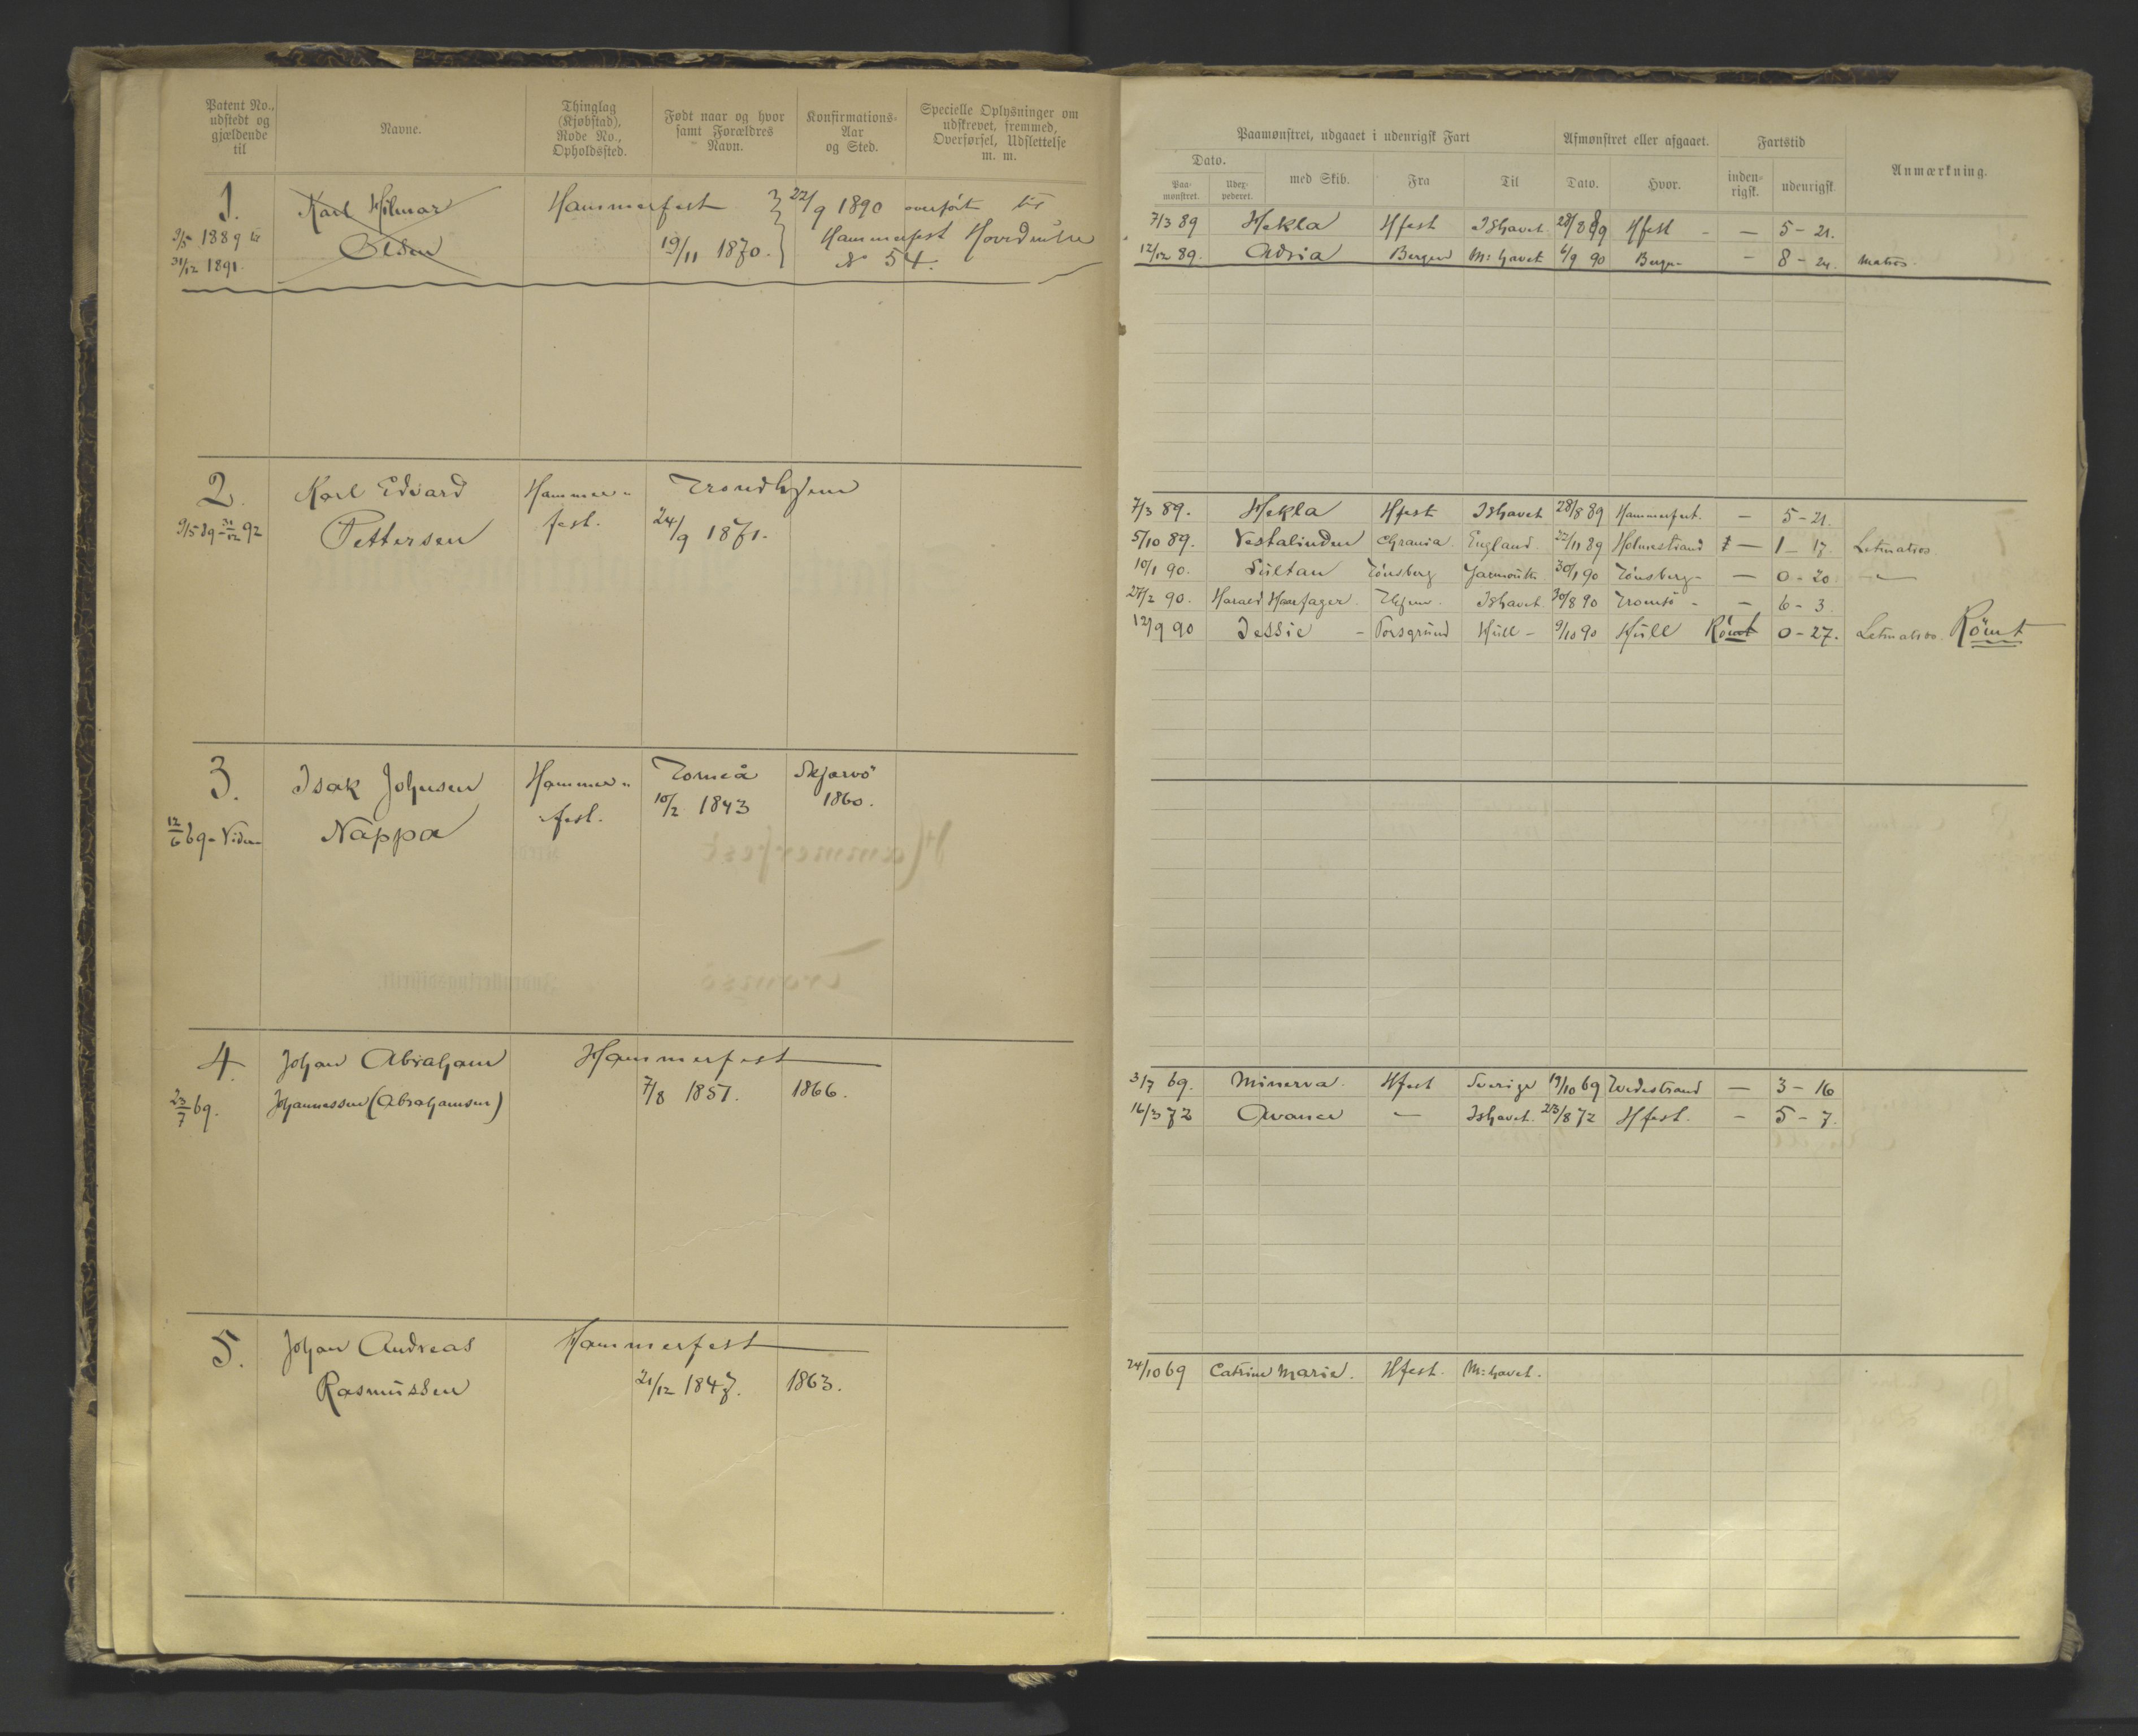 Patent No., udstedt og gjældende til
Navne.
Thinglag (Kjøbstad), Rode No., Opholdssted.
Født naar og hvor samt Forældres Navn.
Konfirmations- Aar og Sted.
Specielle Oplysninger om udskrevet, fremmed, Overførsel, Udslettelse m. m.
1.
9/5 1889 til
31/12 1891.
Karl Hilmar
Olsen
Hammerfest
19/11 1870.
22/9 1890 overført til
Hammerfest Hovedrulle
No 54.
2.
9/5 89 - 31/12 92
Karl Edvard
Pettersen
Hammer-
fest.
Trondhjem
24/9 1871.
3.
12/6 69 - Viden
Isak Johnsen
Nappa
Hammer-
fest.
Torneå
10/2 1843
Skjærvö
1860.
4.
23/7 69.
Johan Abraham
Johannessen (Abrahamsen)
Hammerfest
7/8 1851.
1866.
5.
Johan Andreas
Rasmüssen
Hammerfest
21/12 1847.
1863.
Paamønstret, udgaaet i udenrigsk Fart
Afmønstret eller afgaaet.
Fartstid
Anmærkning.
Dato.
Paa- mønstret.
Udex- pederet.
med Skib.
Fra
Til
Dato.
Hvor.
inden- rigsk.
udenrigsk
7/3 89 Hekla Hfest Ishavet 28/8 89 Hfest - — 5 - 21.
12/12 89. Adria Bergen M: havet 6/9 90 Bergen - 8 - 24. Matros.
7/3 89. Hekla Hfest Ishavet 28/8 89 Hammerfest. — 5 - 21.
5/10 89. Vestalinden Chrania. England. 22/11 89 Holmestrand — 1 - 17. Letmatros
10/1 90. Sültan Tönsberg Yarmoüth 30/1 90 Tönsberg - — 0 - 20 - " -
27/2 90. Harald Haarfager. Thjem. Ishavet. 30/8 90 Tromsö - — 6 - 3.
12/9 90 Jessie - Porsgründ Hüll - 9/10 90 Hüll Römt 0 - 27. Letmatros. Römt
3/7 69. Minerva. Hfest Sverige 19/10 69 Tvedestrand — 3 - 16
16/3 72 Avance — Ishavet. 23/8 72 Hfest. - 5 - 7.
24/10 69 Catrine Marie. Hfest. M: havet.